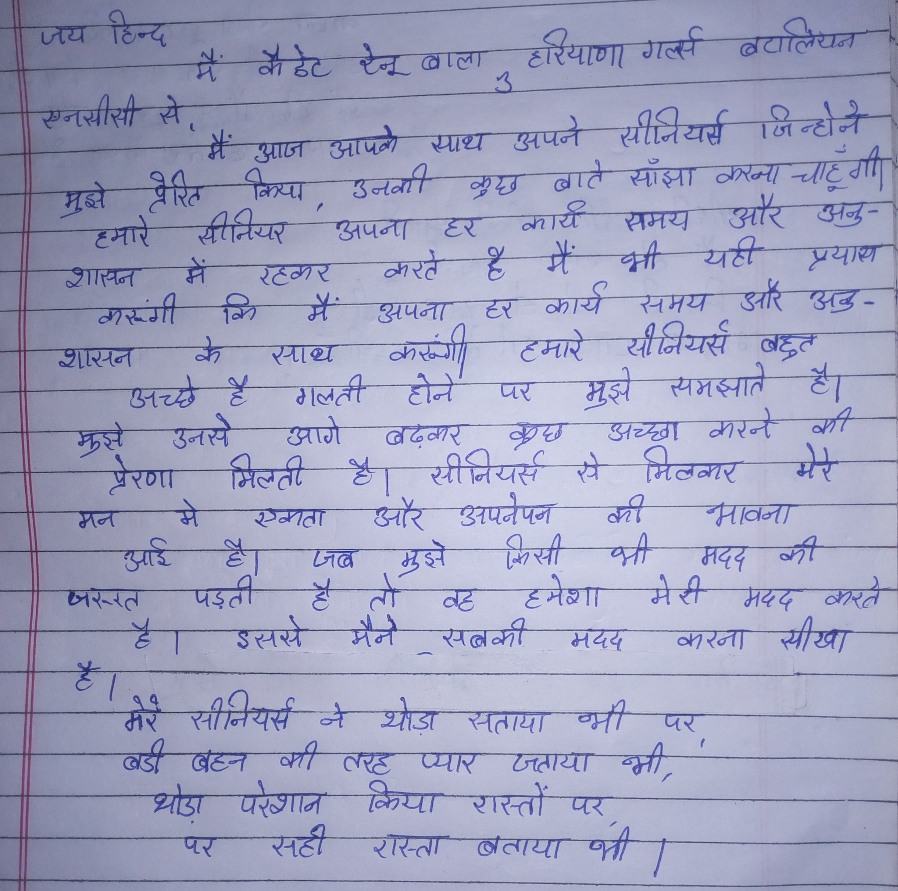 जय हिन्द
मैं कैडेट रेनू बाला, 3 हरियाणा गर्ल्स बटालियन
एनसीसी से,
मैं आज आपके साथ अपने सीनियर्स जिन्होने
मुझे प्रेरित किया, उनकी कुछ बाते साँझा करना चाहूँगी|
हमारे सीनियर अपना हर कार्य समय और अनु-
शासन में रहकर करते है मैं भी यही प्रयास
करूंगी कि मैं अपना हर कार्य समय और अनु-
शासन के साथ करूंगी| हमारे सीनियर्स बहुत
अच्छे है गलती होने पर मुझे समझाते है|
मुझे उनसे आगे बढ़कर कुछ अच्छा करने की
प्रेरणा मिलती है| सीनियर्स से मिलकर मेरे
मन मे एकता और अपनेपन की भावना
आई है| जब मुझे किसी भी मदद की
जरूरत पड़ती है तो वह हमेशा मेरी मदद करते
है| इससे मैने सबकी मदद करना सीखा
है|
मेरे सीनियर्स ने थोड़ा सताया भी पर,
बडी बहन की तरह प्यार जताया भी,
थोड़ा परेशान किया रास्तों पर,
पर सही रास्ता बताया भी|